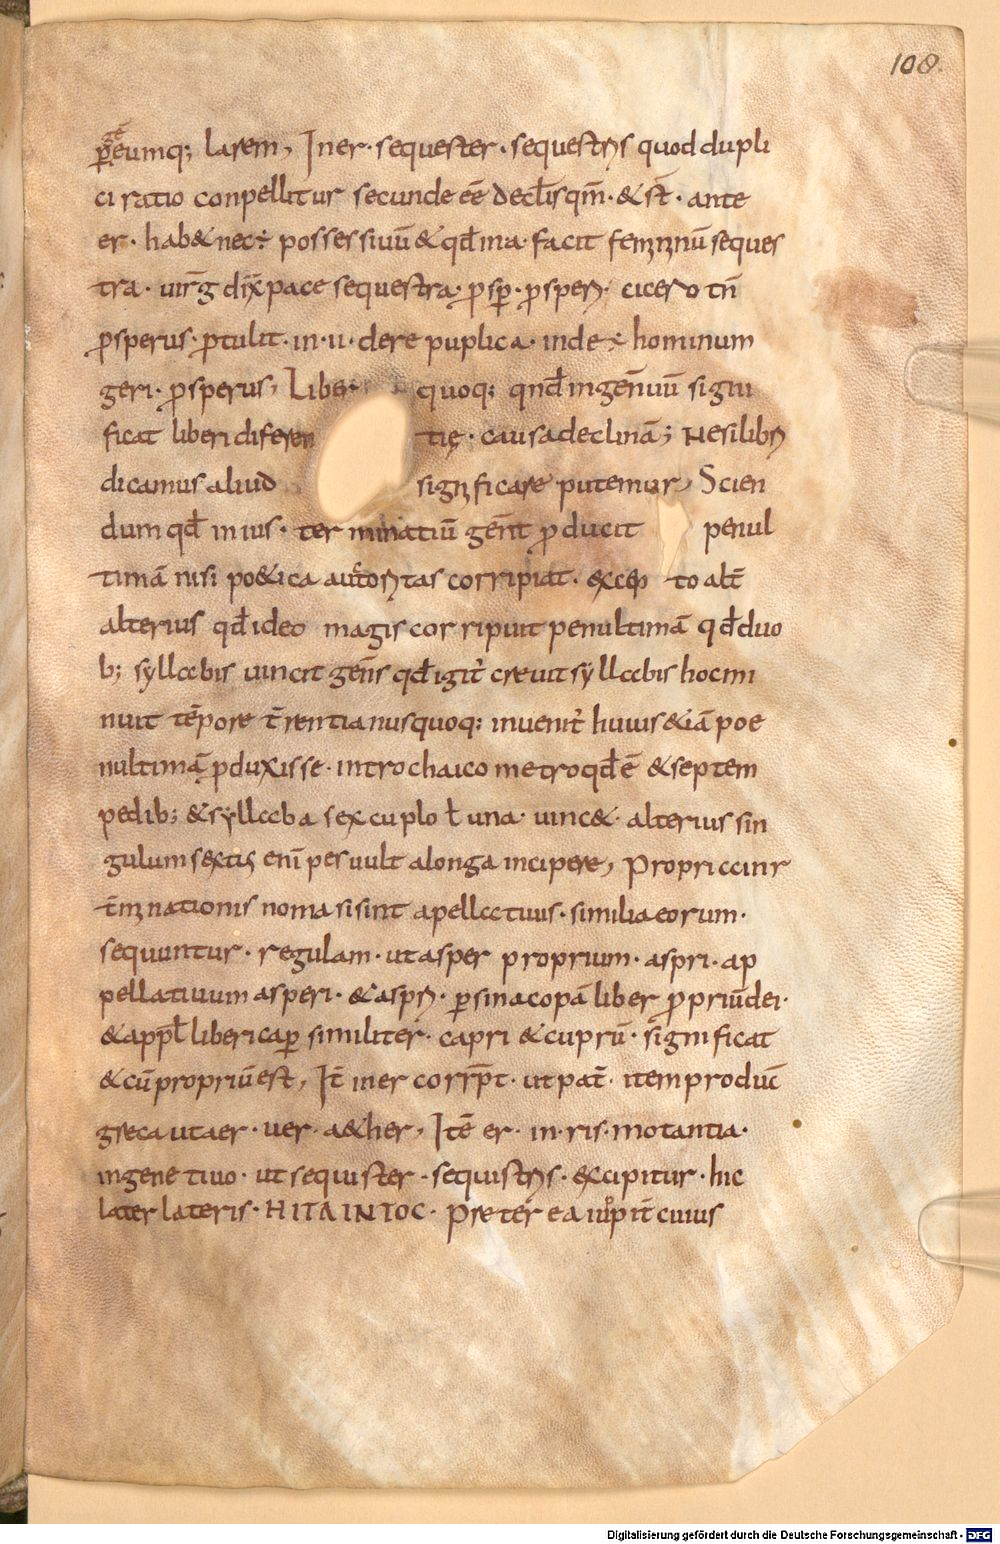 108.
gē
p̄eumq; larem, Iner· sequester· sequestris quod dupli
ci ratio conpellitur secunde eē decl̄isqm̄· & st̄· ante
er· hab& nec ÷ possessiuū & qd̄ ina· facit femininū seques
tra· uirḡ dix̄ pace sequestra· ꝓsp̄· ꝓsperi· cicero tn̄
ꝓsperus· ꝓtulit· in· ii· dere puplica· inde hominum
geri· ꝓsperus, Liber quoq; qnd̄ ingenuū signi
ficat liberi diferen tię· causa declinā; Ne si libri
dicamus aliud significare putemur, Scien
dum qd̄ in ius· ter minatiū gen̄t ꝓducit penul
timā nisi po&ica auctoritas corripiat· excep to alt̄
alterius qd̄ ideo magis corripuit penultimā qd̄ duo
b; syllabis uincit gen̄s qd̄ igit̄ creuit syllabis hoc mi
nuit tēpore t̄rentianus quoq; inuenit̄ huius &iā poe
nultimā ꝓduxisse· introchaico metro qd̄ ē & septem
pedib; & syllaba sexcuplo ł una· uinc& alterius sin
gulum sextis enī pes uult alonga incipere, Propria inr
t̄minationis noma si sint apellatiuis· similia eorum·
sequuntur· regulam· ut asper proprium· aspri· ap
pellatiuum asperi· & aspri· ꝑ sinacopā liber ꝓpriū dei·
& appl̄ liberi caꝑ similiter· capri & cuprū· significat
& cū propriū est, It̄ iner corrp̄t· ut pat̄· item produc̄
greca ut aer· uer· a&her, Itē er· in· ris· motantia·
ingenetiuo· ut sequister· sequistris· excipitur· hic
later lateris· HITA INTOC· Preter ea iupit̄ cuius
Digitalisierung gefördert durch die Deutsche Forschungsgemeinschaft - DFG